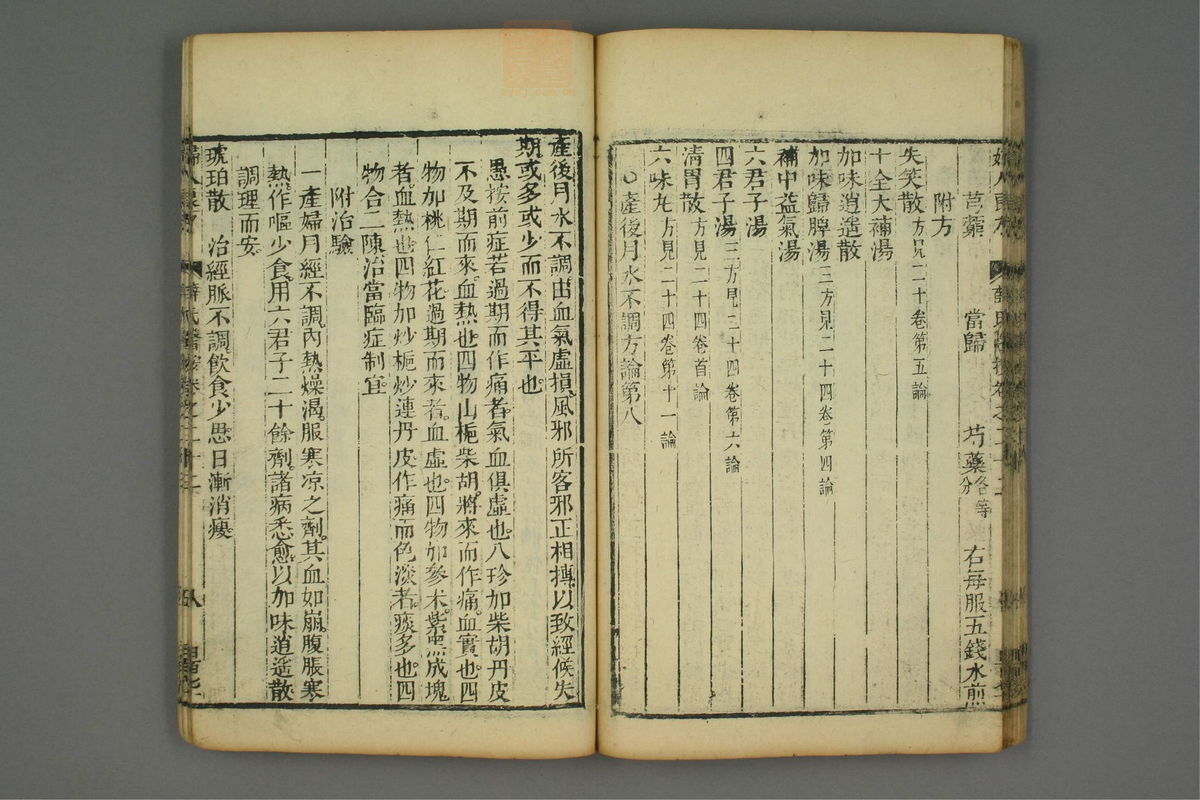 芎藭 當歸 芍藥各等分 右每服五錢水煎
附方
失笑散方見二十卷第五論
十全大補湯
加味逍遙散
加味歸脾湯三方見二十四卷第四論
補中益氣湯
六君子湯
四君子湯三方見二十四卷第六論
清胃散方見二十四卷首論
六味丸方見二十四卷第十一論
○產後月水不調方論第八
產後月水不調由血氣虛損風邪所客邪正相搏以致經候失
期或多或少而不得其平也
愚按前症若過期而作痛者氣血俱虛也八珍加柴胡丹皮
不及期而來血熱也四物山梔柴胡將來而作痛血實也四
物加桃仁紅花過期而來者血虛也四物加參术紫黑成塊
者血熱也四物加炒梔炒連丹皮作痛而色淡者痰多也四
物合二陳治當臨症制宜
附治驗
一產婦月經不調內熱燥渴服寒凉之劑其血如崩腹脹寒
熱作嘔少食用六君子二十餘劑諸病悉愈以加味逍遙散
調理而安
琥珀散 治經脈不調飲食少思日漸消瘦